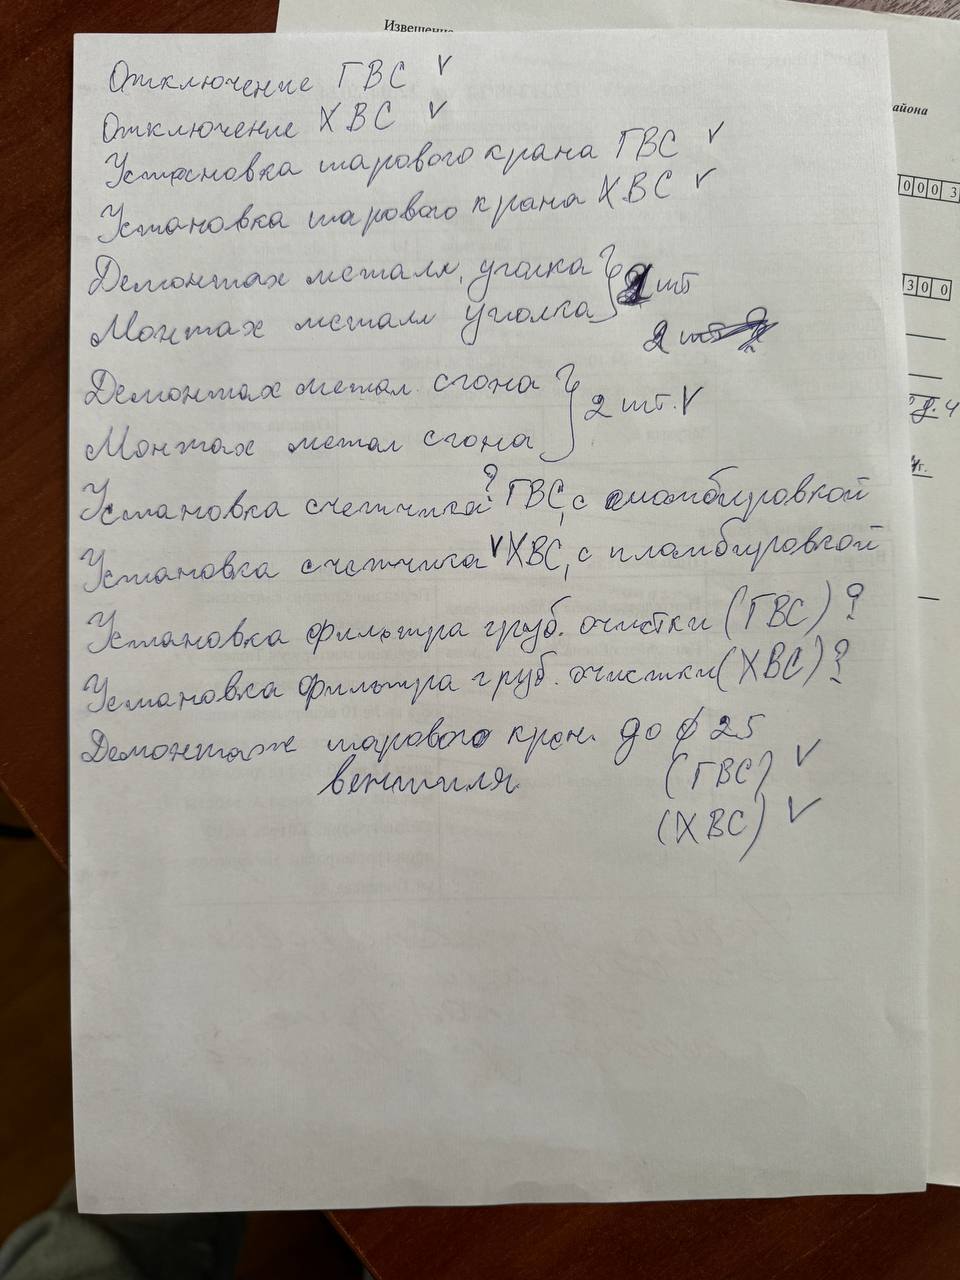 Извещение
района
0 0 0 3
3 0 0
Отключение ГВС V
Отключение ХВС V
Установка шарового крана ГВС V
Установка шарового крана ХВС V
Демонтаж металл. уголка
Монтаж металл уголка
шт
2 шт
Демонтаж метал. сгона
2 шт. V
Монтаж метал сгона
Установка счетчика ? ГВС, с пломбировкой
Установка счетчика V ХВС, с пломбировкой
Установка фильтра груб. очистки (ГВС) ?
Установка фильтра груб. очистки (ХВС) ?
Демонтаж шарового кран. до ∅ 25
вентиля (ГВС) V
(ХВС) V